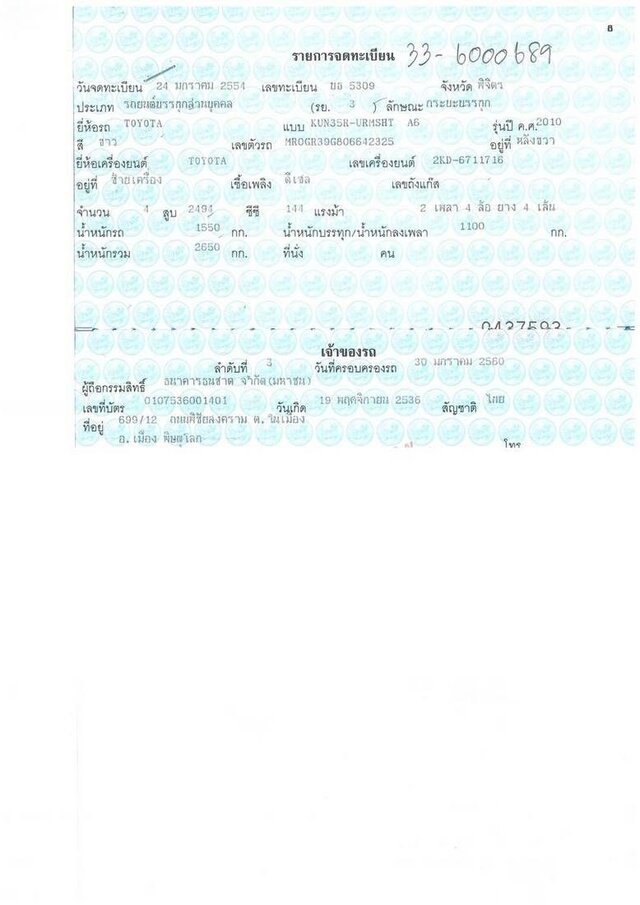 8
รายการจดทะเบียน 33-6000689
วันจดทะเบียน 24 มกราคม 2554 เลขทะเบียน บธ 5309 จังหวัด พิจิตร
ประเภท รถยนต์บรรทุกส่วนบุคคล (รย. 3 ) ลักษณะ กระบะบรรทุก
ยี่ห้อรถ TOYOTA แบบ KUN35R-URMSHT A6 รุ่นปี ค.ศ. 2010
สี ขาว เลขตัวรถ MROGR39G806642325 อยู่ที่ หลังขวา
ยี่ห้อเครื่องยนต์ TOYOTA เลขเครื่องยนต์ 2KD-6711716
อยู่ที่ ซ้ายเครื่อง เชื้อเพลิง ดีเซล เลขถังแก๊ส
จำนวน 4 สูบ 2494 ซีซี 144 แรงม้า 2 เพลา 4 ล้อ ยาง 4 เส้น
น้ำหนักรถ 1550 กก. น้ำหนักบรรทุก/น้ำหนักลงเพลา 1100 กก.
น้ำหนักรวม 2650 กก. ที่นั่ง คน
0437593
เจ้าของรถ
ลำดับที่ 3 วันที่ครอบครองรถ 30 มกราคม 2560
ผู้ถือกรรมสิทธิ์ ธนาคารธนชาต จำกัด(มหาชน)
เลขที่บัตร 0107536001401 วันเกิด 19 พฤศจิกายน 2536 สัญชาติ ไทย
ที่อยู่ 699/12 ถนนพิชัยสงคราม ต.ในเมือง
อ.เมือง พิษณุโลก
โทร